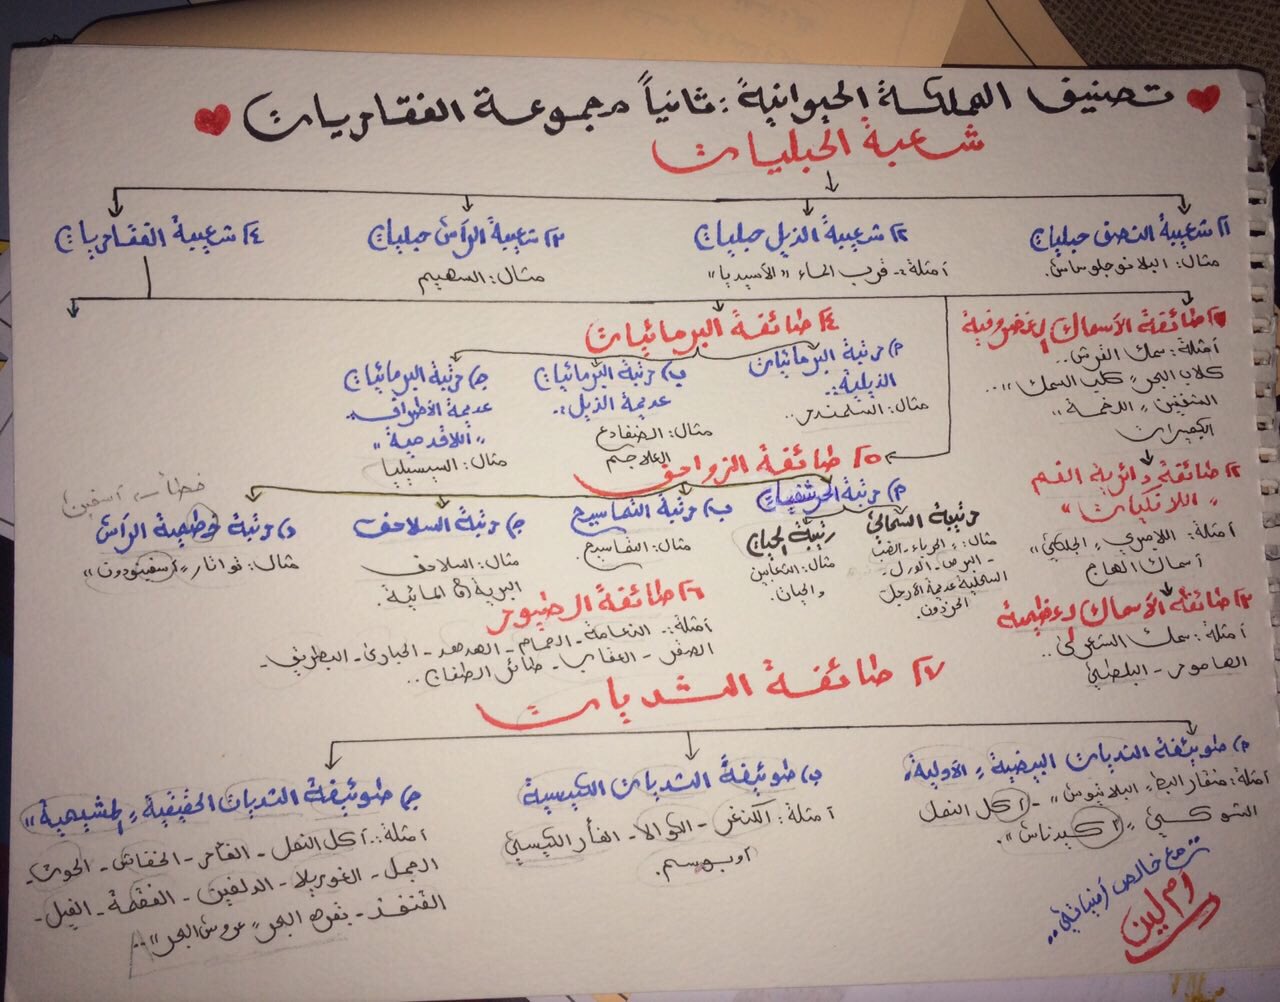 تصنيف المملكة الحيوانية: ثانياً مجموعة الفقاريات
شعبة الحبليات
١) شعيبة النصف حبليات
مثال: البلانوجلوساس.
٢) شعيبة الذيل حبليات
أمثلة: قرب الماء "الأسيديا"
٣) شعيبة الرأس حبليات
مثال: السهيم
٤) شعيبة الفقاريات
١) طائفة الأسماك الغضروفية
أمثلة: سمك القرش..
كلاب البحر "كلب السمك"..
السفنين "الرخمة"
الكيميرات
٢) طائفة دائرية الفم
"اللافكيات"
أمثلة: اللامبري "الجلكي"
أسماك الهاج
٣) طائفة الأسماك العظمية
أمثلة: سمك الشعري..
الهامور - البلطي
٤) طائفة البرمائيات
أ) رتبة البرمائيات
الذيلية:.
مثال: السلمندر..
ب) رتبة البرمائيات
عديمة الذيل:.
مثال: الضفادع
العلاجم
ج) رتبة البرمائيات
عديمة الأطراف.
"اللاقدمية"
مثال: السيسيليا
٥) طائفة الزواحف
أ) رتبة الحرشفيات
رتيبة السحالي
مثال: الحرباء - الضب
- البرص - الورل -
السحلية عديمة الأرجل
الحرذون.
رتيبة الحيات
مثال: الثعابين
والحيات.
ب) رتبة التماسيح
مثال: التماسيح.
ج) رتبة السلاحف
مثال: السلاحف
البرية & المائية.
خطأ → أسفين
د) رتبة خطمية الرأس
مثال: تواتارا "أسفينودون"
٦) طائفة الطيور
أمثلة:. النعامة - الحمام - الهدهد - الحباري - البطريق -
الصقر - العقاب - طائر الطفان..
٧) طائفة الثديات
أ) طويئفة الثديات البيضية "الأولية"
أمثلة: منقار البط "البلاتبوس" - أكل النمل
الشوكي "أكيدناس".
ب) طويئفة الثديات الكيسية
أمثلة: الكنغر - الكوالا - الفأر الكيسي
أوبوسم.
ج) طويئفة الثديات الحقيقية "المشيمية"
أمثلة:. أكل النمل - الفأر - الخفاش - الحوت -
الجمل - الغوريلا - الدلفين - الفقمة - الفيل -
القنفذ - بقرة البحر "عروس البحر"..
مع خالص أمنياتي..
ام لين